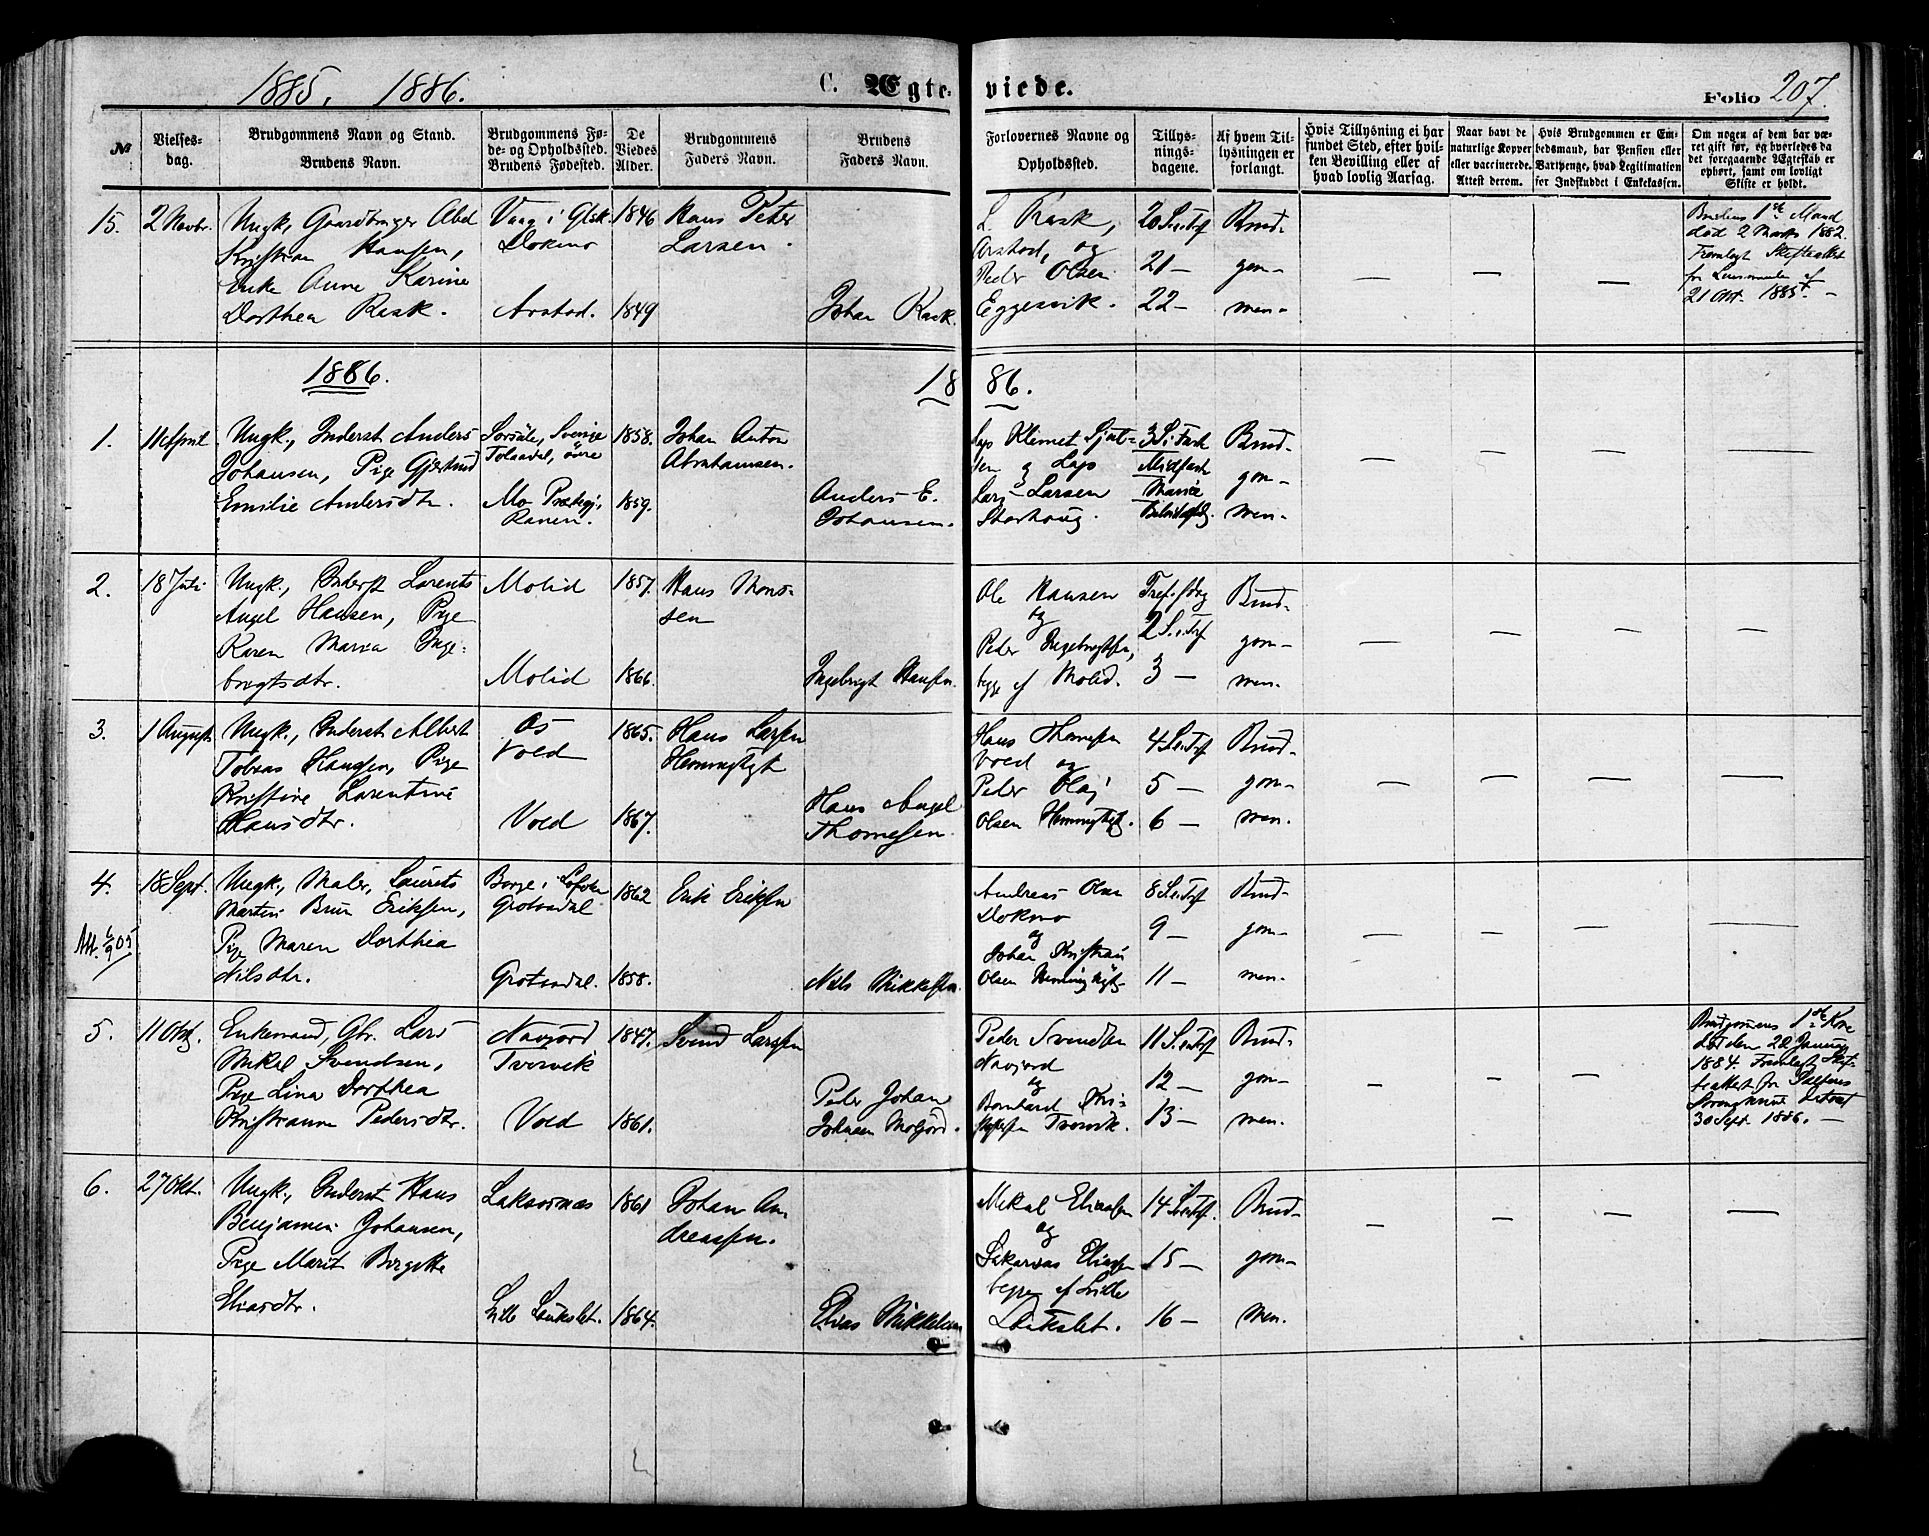 1885, 1886.
C. Ægte-viede.
Folio 207.
№
Vielses-
dag.
Brudgommens Navn og Stand.
Brudens Navn.
Brudgommens Fø-
de- og Opholdssted.
Brudens Fødested.
De
Viedes
Alder.
Brudgommens
Faders Navn.
Brudens
Faders Navn.
Forlovernes Navne og
Opholdssted.
Tillys-
nings-
dagene.
Af hvem Til-
lysningen er
forlangt.
Hvis Tillysning ei har
fundet Sted, efter hvil-
ken Bevilling eller af
hvad lovlig Aarsag.
Naar havt de
naturlige Kopper
eller vaccinerede.
Attest derom.
Hvis Brudgommen er Em-
bedsmand, har Pension eller
Vartpenge, hvad Legitimation
for Indskuddet i Enkekassen.
Om nogen af dem har væ-
ret gift før, og hvorledes da
det foregaaende Ægteskab er
ophørt, samt om lovligt
Skifte er holdt.
15.
2 Novbr.
Ungk., Gaardbruger Abel
Kristian Hansen,
Enke Anne Karine
Dorthea Rask.
Vaag i Glsk.
Dokmo
Arstad.
1846
1849
Hans Peter
Larsen.
Johan Rask.
L. Rask,
Arstad, og
Peder Olsen
Eggesvik.
20 S.e.Tref
21 —
22 —
Brud-
gom-
men-
Brudens 1ste Mand
død 2 Marts 1882.
Fremlagt Skifteattest
fra Lensmanden af
21 Okt. 1885. —
1886.
1886.
1.
11 April
Ungk., Inderst Anders
Johansen, Pige Gjertrud
Emilie Andersdtr.
Sorsele, Sverige
Tolaadal, øvre
Mo Præstegj.
Ranen.
1858.
1859.
Johan Anton
Abrahamsen.
Anders E.
Johansen.
Lars Larsen
Storhaug.
3 S. i Faste
Midfaste
Mariæ
Brud-
gom-
men-
2.
18 Juli
Ungk., Inderst Lorents
Angel Hansen, Pige
Karen Maria Inge-
brigtsdtr.
Molid
Molid
1857.
1866.
Hans Mons-
sen
Ingebrigt Hansen.
Ole Hansen
og
Peder Ingebrigtsen,
begge af Molid.
Tref. sdag
2 S.e.Tref
3 —
Brud-
gom-
men-
3.
1 August
Ungk., Inderst Albert
Tobias Hansen, Pige
Kristine Larentine
Hansdtr.
Os
Vold
Vold
1865.
1867.
Hans Larsen
Hemmingtygt
Hans Angel
Thomesen.
Hans Thomesen
Vold og
Peter Olaj
Olsen Hemmingtygt.
4 S.e.Tref
5 —
6 —
Brud-
gom-
men.
4.
18 Sept.
Att. 6/9 05
Ungk., Maler, Laurits
Martin Brun Eriksen,
Pige Maren Dorthea
Nilsdtr.
Borge i Lofoten
Grotaadal
Grotaadal.
1862
1858.
Erik Eriksen
Nils Mikkelsen.
Andreas Olsen
Dokmo
og
Johan Kristian
Olsen
8 S.e.Tref
9 —
11 —
Brud-
gom-
men.
5.
11 Okt.
Enkemand, Gbr. Lars
Mikal Svendsen,
Pige Lina Dorthea
Kristianna Pedersdtr.
Navjord
Tvervik
Vold
1847.
1861.
Svend Larsen
Peder Johan
Johnsen Mofjord.
Peder Svendsen
Navjord
og
Bernhard Kri-
stofersen Tvervik.
11 S.e.Tref
12 —
13 —
Brud-
gom-
men.
Brudgommens 1ste Kone
død den 22 Januar
1884. Fremlagt Skif-
teattest fra Saltens
Sorenskriveri datert
30 Sept. 1886. —
6.
27 Okt.
Ungk., Inderst Hans
Benjamin Johansen,
Pige Marit Bergitte
Eliasdtr.
Laksosnæs
Lille Laukslet.
1861
1864.
Johan An-
dreassen.
Elias Mikkelsen
Mikal Eliassen
og
Sakarias Eliassen
begge af Lille
Laukslet.
14 S.e.Tref.
15 —
16 —
Brud-
gom-
men.